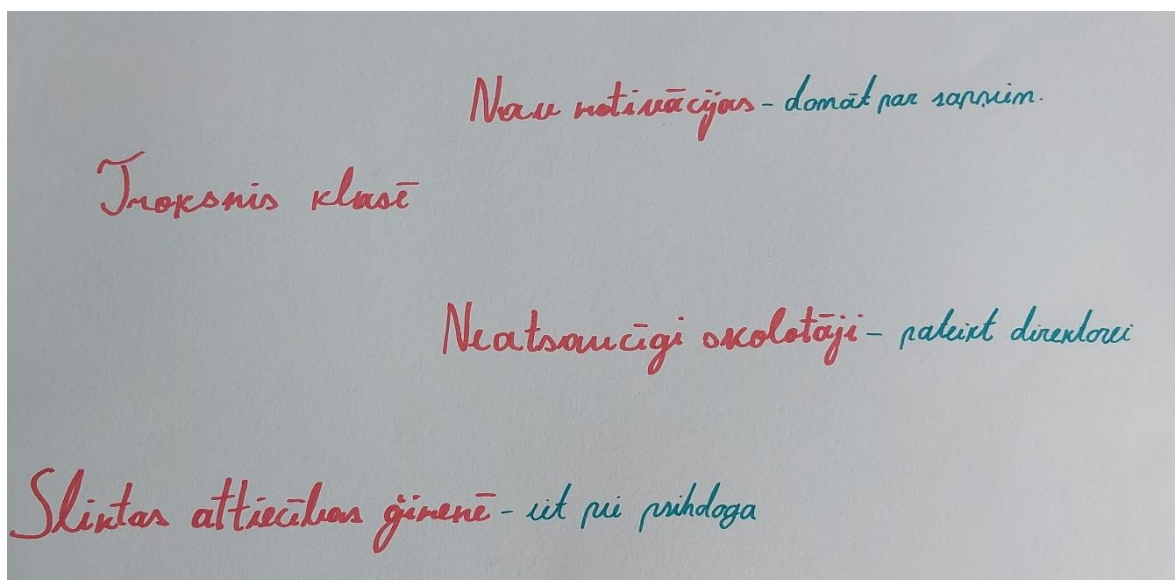 Nav motivācijas - domāt par sapņiem.
Troksnis klasē
Neatsaucīgi skolotāji - pateikt direktorei
Sliktas attiecības ģimenē - iet pie psihologa